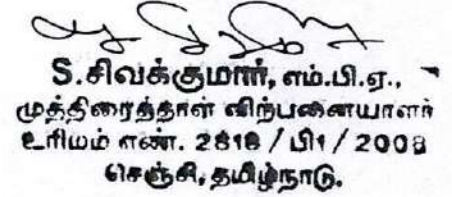 S.சிவக்குமார், எம்.பி.ஏ.,
முத்திரைத்தாள் விற்பனையாளர்
உரிமம் எண். 2818 / பி1 / 2008
செஞ்சி, தமிழ்நாடு.